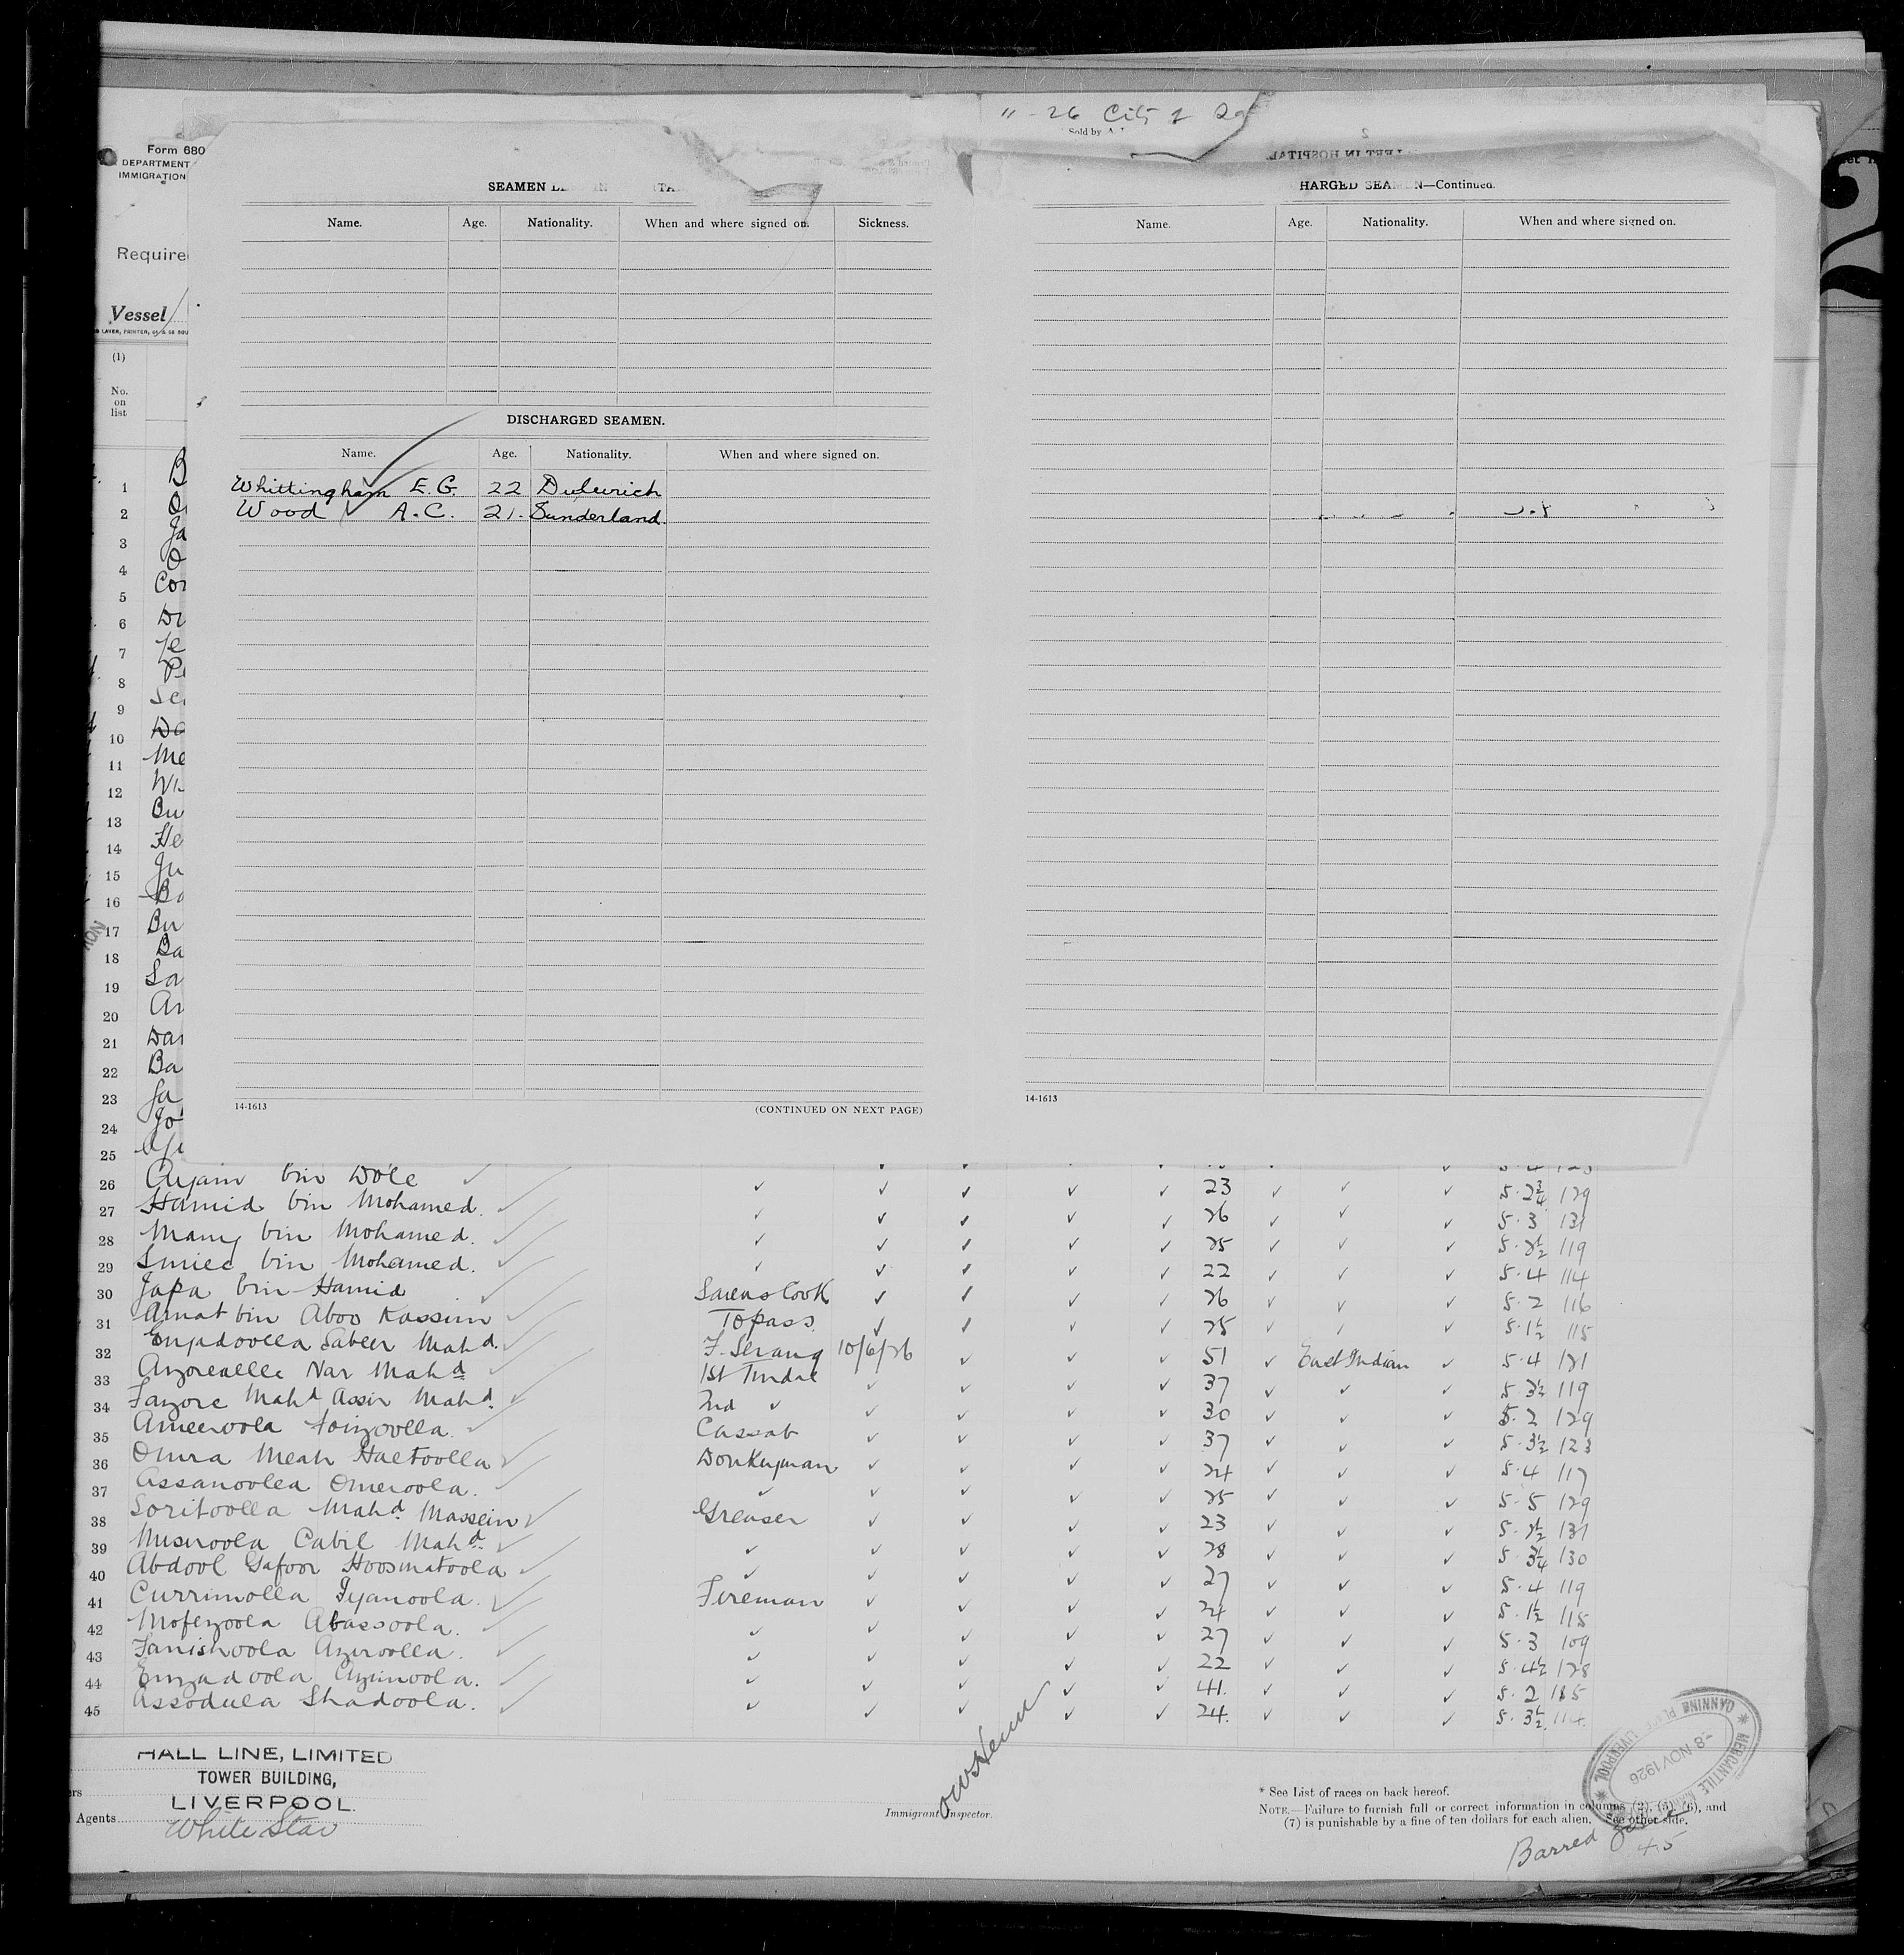 " - 26 City of
Sold by A.
Form 680
DEPARTMENT
IMMIGRATION
Require
Vessel
(1)
No.
on
list
SEAMEN
Name. Age. Nationality. When and where signed on. Sickness.
DISCHARGED SEAMEN.
Name. Age. Nationality. When and where signed on.
Whittingham E. G. 22 Dulwich
Wood A. C. 21. Sunderland.
14-1613 (CONTINUED ON NEXT PAGE)
LEFT IN HOSPITAL
HARGED SEAMEN—Continued.
Name. Age. Nationality. When and where signed on.
14-1613
1 B
2 O
3 Ja
4 O
5 Con
6 Du
7 Je
8 Pe
9 Se
10 Do
11 Me
12 Wh
13 Bu
14 He
15 Ju
16 Bo
17 Bu
18 Ba
19 Sa
20 An
21 Dar
22 Ba
23 Ja
24 Jo
25
26 bin Dole ✓ ✓ ✓ ✓ ✓ ✓ 23 ✓ ✓ ✓ 5·2¾ 129
27 Hamid bin Mohamed. ✓ ✓ ✓ ✓ ✓ 26 ✓ ✓ ✓ 5·3 131
28 bin Mohamed. ✓ ✓ ✓ ✓ ✓ 25 ✓ ✓ ✓ 5·2½ 119
29 bin Mohamed. ✓ ✓ ✓ ✓ ✓ 22 ✓ ✓ ✓ 5·4 114
30 Japa bin Hamid Cook ✓ ✓ ✓ ✓ 26 ✓ ✓ ✓ 5·2 116
31 Amat bin Aboo Kassim Topass. ✓ ✓ ✓ ✓ 25 ✓ ✓ ✓ 5·1½ 115
32 Mahd. F. Serang 10/6/26 ✓ ✓ ✓ 51 ✓ East Indian ✓ 5·4 121
33 Nar Mahd 1st Tindal ✓ ✓ ✓ ✓ 37 ✓ ✓ ✓ 5·3½ 119
34 Fazore Mahd Assir Mahd. 2nd ✓ ✓ ✓ ✓ ✓ 30 ✓ ✓ ✓ 5·2 129
35 Ameeroola Foizoolla. Cassab ✓ ✓ ✓ ✓ 37 ✓ ✓ ✓ 5·3½ 123
36 Omra Meah Haetoolla Donkeyman ✓ ✓ ✓ ✓ 24 ✓ ✓ ✓ 5·4 117
37 Assanoolea Omeroola. ✓ ✓ ✓ ✓ ✓ 25 ✓ ✓ ✓ 5·5 129
38 Soritoolla Mahd. Massein Greaser ✓ ✓ ✓ ✓ 23 ✓ ✓ ✓ 5·2½ 131
39 Cabil Mahd. ✓ ✓ ✓ ✓ ✓ 28 ✓ ✓ ✓ 5·3¼ 130
40 Abdool Gafoor Hoosmatoola ✓ ✓ ✓ ✓ ✓ 27 ✓ ✓ ✓ 5·4 119
41 Currimolla Fyanoola. Fireman ✓ ✓ ✓ ✓ 24 ✓ ✓ ✓ 5·1½ 115
42 Mofezoola Abassoola. ✓ ✓ ✓ ✓ ✓ 27 ✓ ✓ ✓ 5·3 109
43 Fanishoola Azeroolla. ✓ ✓ ✓ ✓ ✓ 22 ✓ ✓ ✓ 5·4½ 128
44 Emzadoola Azimoola. ✓ ✓ ✓ ✓ ✓ 41. ✓ ✓ ✓ 5·2 125
45 Assodula Shadoola. ✓ ✓ ✓ ✓ ✓ 24. ✓ ✓ ✓ 5·3½ 114
HALL LINE, LIMITED
TOWER BUILDING,
LIVERPOOL.
Agents White Star
Immigrant Inspector.
* See List of races on back hereof.
NOTE.—Failure to furnish full or correct information in columns (2), (5), (6), and
(7) is punishable by a fine of ten dollars for each alien. See other side.
MERCANTILE MARINE CANNING PLACE LIVERPOOL
-8 NOV 1926
Barred zone
45